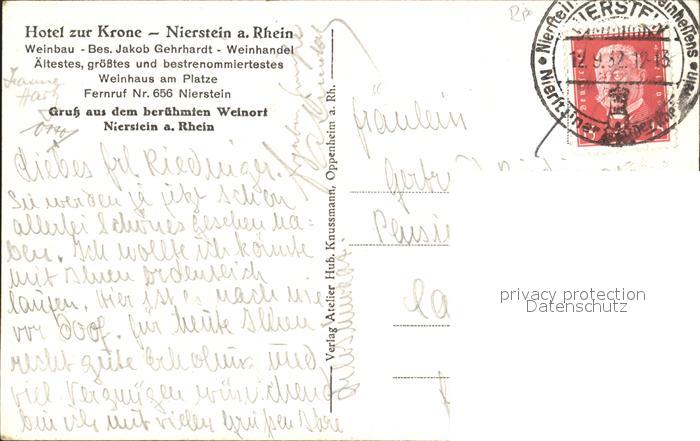 Hotel zur Krone – Nierstein a. Rhein
Weinbau - Bes. Jakob Gehrhardt - Weinhandel
Ältestes, größtes und bestrenommiertestes
Weinhaus am Platze
Fernruf Nr. 656 Nierstein
Gruß aus dem berühmten Weinort
Nierstein a. Rhein
Liebes Frl. Riedinger.
Sie werden ja jetzt schon
allerlei Schönes gesehen ha-
ben. Ich wollte ich könnte
mit Ihnen ordentlich
laufen. Hier ist es nach wie
vor doof. Für heute Ihnen
recht gute Erholung und
viel Vergnügen wünschend
bin ich mit vielen Grüßen Ihre
Verlag Atelier Hub. Knussmann, Oppenheim a. Rh.
Fräulein
Pensi
NIERSTEIN
12.9.32.12-13
Deutsches
privacy protection
Datenschutz